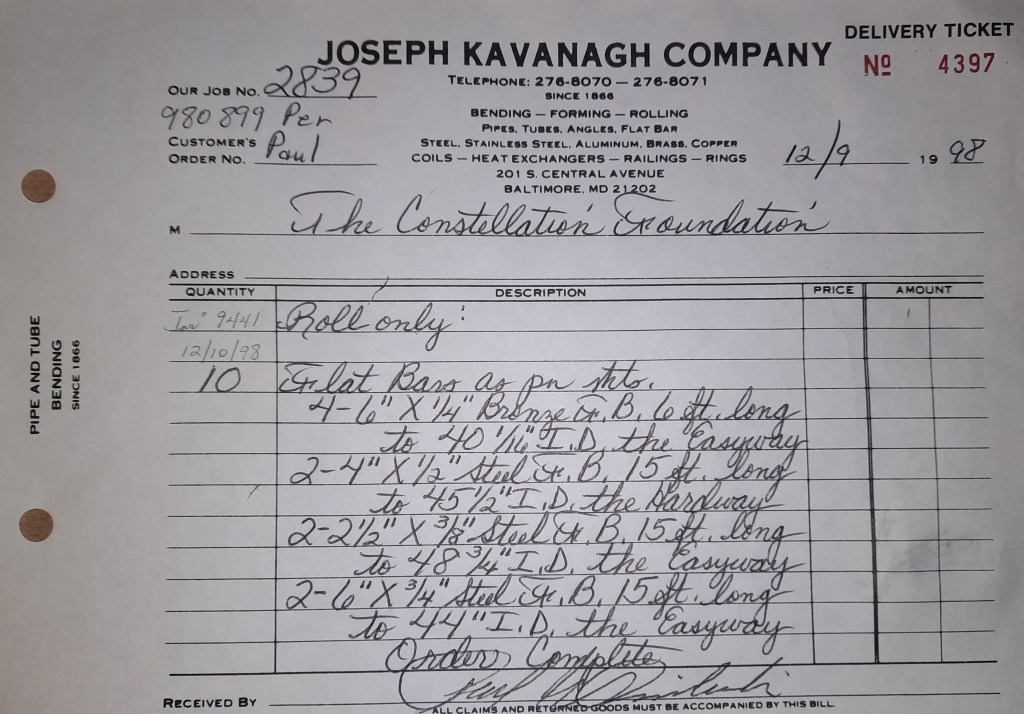 DELIVERY TICKET
JOSEPH KAVANAGH COMPANY
Nº 4397
TELEPHONE: 276-8070 — 276-8071
SINCE 1866
OUR JOB NO. 2839
980899 Per
CUSTOMER'S
ORDER NO. Paul
BENDING — FORMING — ROLLING
PIPES, TUBES, ANGLES, FLAT BAR
STEEL, STAINLESS STEEL, ALUMINUM, BRASS, COPPER
COILS — HEAT EXCHANGERS — RAILINGS — RINGS
201 S. CENTRAL AVENUE
BALTIMORE, MD 21202
12/9 19 98
M The Constellation Foundation
ADDRESS
QUANTITY DESCRIPTION PRICE AMOUNT
Inv 9441 Roll only:
12/10/98
10 Flat Bars as per
4-6" X 1/4" Bronze F.B. 6 ft. long
to 40 1/16" I.D. the Easyway
2-4" X 1/2" Steel F.B. 15 ft. long
to 45 1/2" I.D. the Hardway
2-2 1/2" X 3/8" Steel F.B. 15 ft. long
to 48 3/4" I.D. the Easyway
2-6" X 3/4" Steel F.B. 15 ft. long
to 44" I.D. the Easyway
Order Complete
RECEIVED BY
ALL CLAIMS AND RETURNED GOODS MUST BE ACCOMPANIED BY THIS BILL
PIPE AND TUBE
BENDING
SINCE 1866